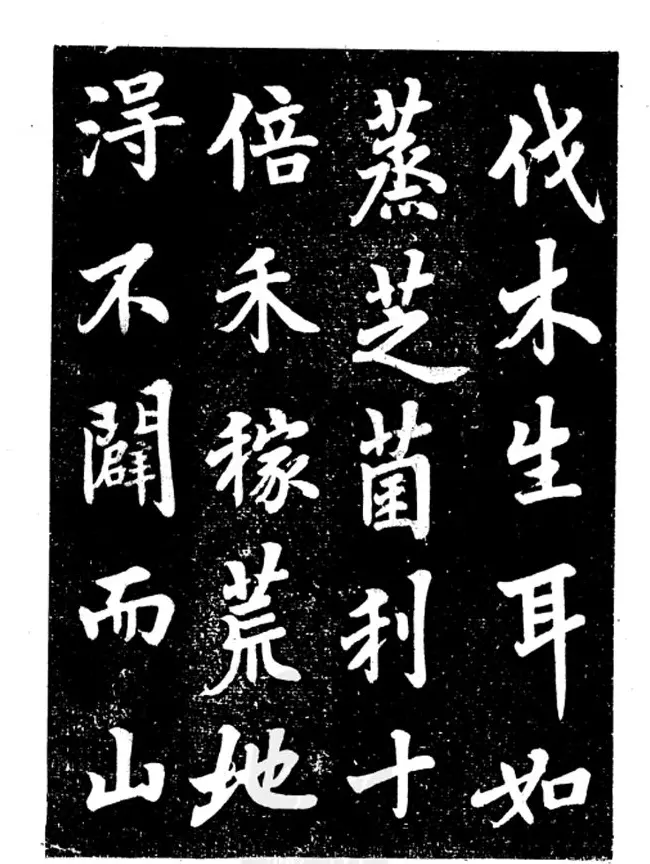 伐木生耳如
蒸芝菌利十
倍禾稼荒地
淂不闢而山